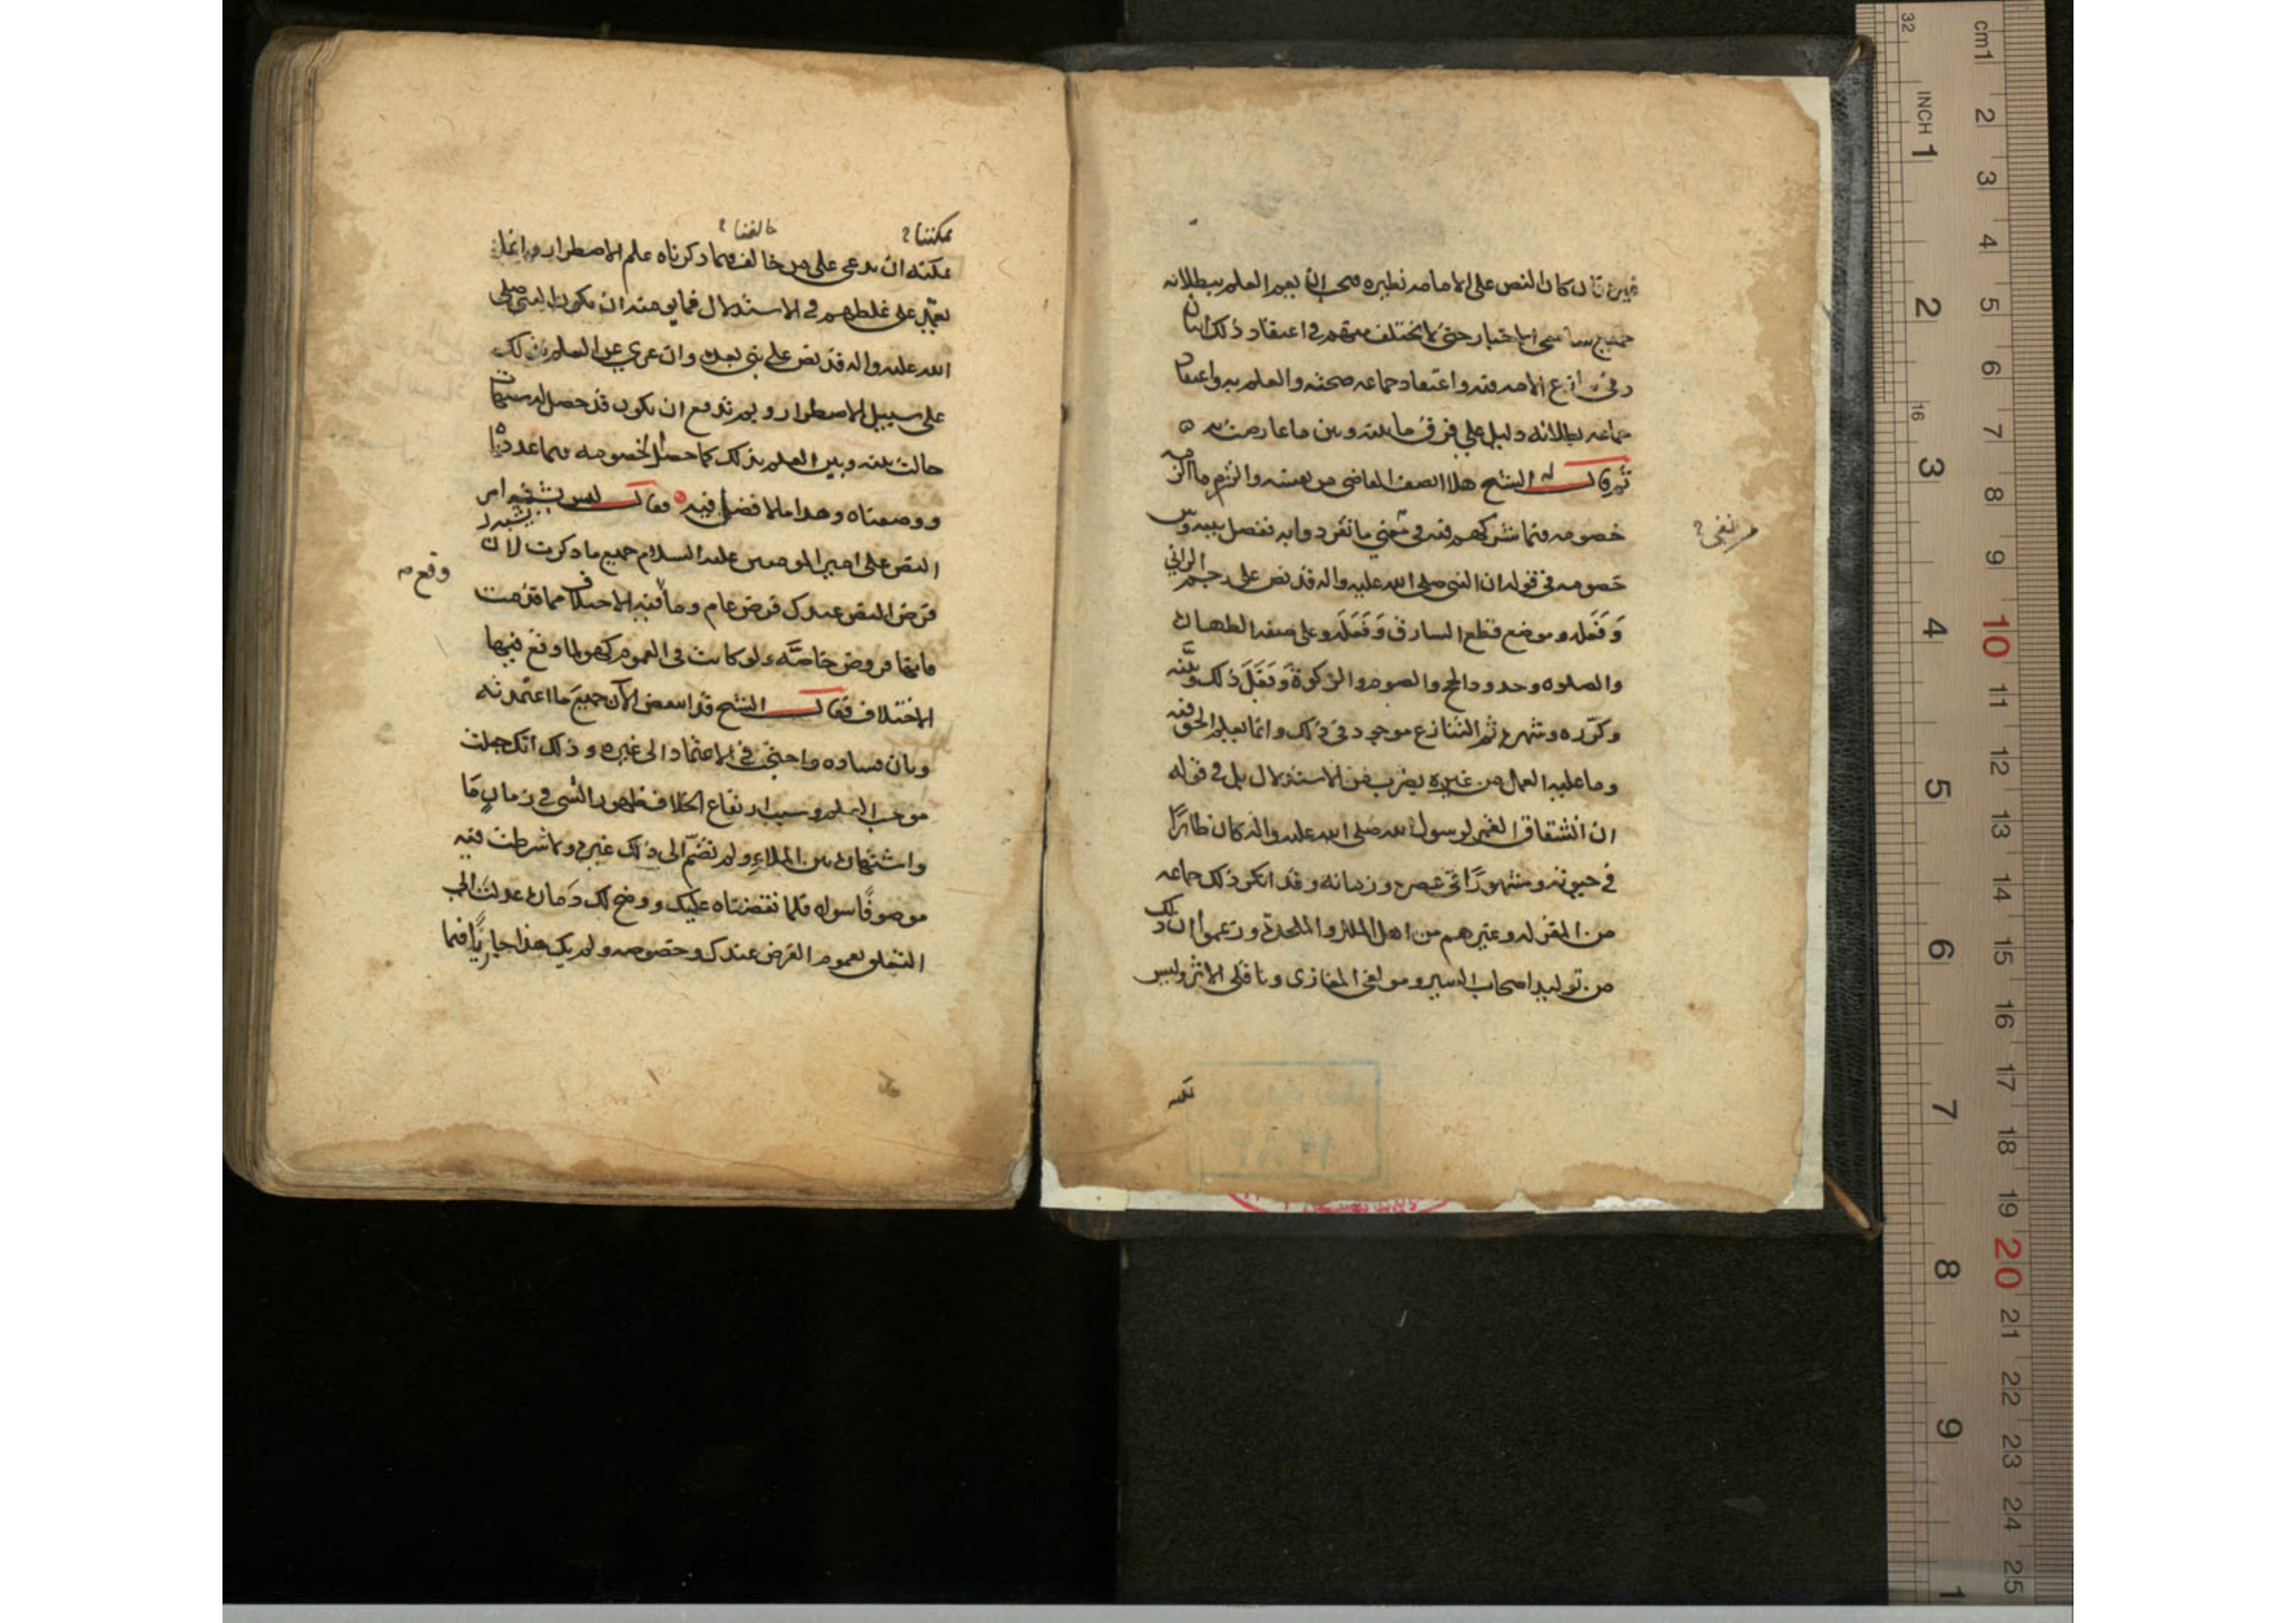 فان كان النص على الامامه نظيره فيجب ان يعم العلم ببطلانه
جميع سامعي الاخبار حتى لا يختلف منهم في اعتقاد ذلك اثنان
وفي تنازع الامه فيه واعتقاد جماعه صحته والعلم به واعتقاد
جماعه بطلانه دليل على فرق ما بينه وبين ما عارضت به
ثم قال له الشيخ هلا انصف القاضي من نفسه والتزم ما الزمه
خصومه فيما شركهم فيه في معنى ما تفرد وابه ففصل بينه وبين
خصومه في قوله ان النبي صلى الله عليه واله قد نص على رجم الزاني
وَفَعَله وموضع قطع السارق وَفَعَلَه وعلى صفه الطهاره
والصلوه وحدود الحج والصوم والزكوة وَفَعَلَ ذلك وبيّنه
وكرّره وشهره ثم التنازع موجود في ذلك وانما يعلم الحق فيه
وما عليه العمل من غيره بضرب من الاستدلال بل في قوله
ان انشقاق القمر لرسول الله صلى الله عليه واله كان ظاهرًا
في حيوته ومشهورًا في عصره وزمانه وقد انكر ذلك جماعه
من المعتزله وغيرهم من اهل الملل والملحدة وزعموا ان ذلك
من توليد اصحاب السير ومولفي المغازى وناقلى الاثر وليس
يمكننا؟
خالفنا؟
يمكنه ان يدعي على من خالف فيما ذكرناه علم الاضطرار وانما
يعتمد على غلطهم في الاستدلال فما يومنه ان يكون النبي صلى
الله عليه واله قد نص على نبي بعده وان عري عن العلم بذلك
على سبيل الاضطرار ولم تدفع ان يكون قد حصل له شبهات
حالت بينه وبين العلم بذلك كما حصل لخصومه فيما عددناه
ووصفناه وهذا ما لا فضل فيه فقال ليس يشبه امر
النص على امير المومنين عليه السلام جميع ما ذكرت لان
وقع
فرض النص عندك فرض عام وما فيه الاختلاف مما قدمت
فانها فروض خاصَّه ولو كانت في العموم كهو لما وقع فيها
الاختلاف فقال الشيخ قد انتقض الآن جميع ما اعتمدته
وبان فساده واحتجت في الاعتماد الى غيره وذلك انك جعلت
موجب العلم وسبب ارتفاع الخلاف ظهور الشي في زمانٍ مَا
واشتهاره بين الملاءِ ولم تضمّ الى ذلك غيره ولا شرطت فيه
موصوفًا سواه فلما نقضناه عليك ووضح لك دَماره عدلت الى
التعلق بعموم الفرض عندك وخصوصه ولم يك هذا جاريًا فيما